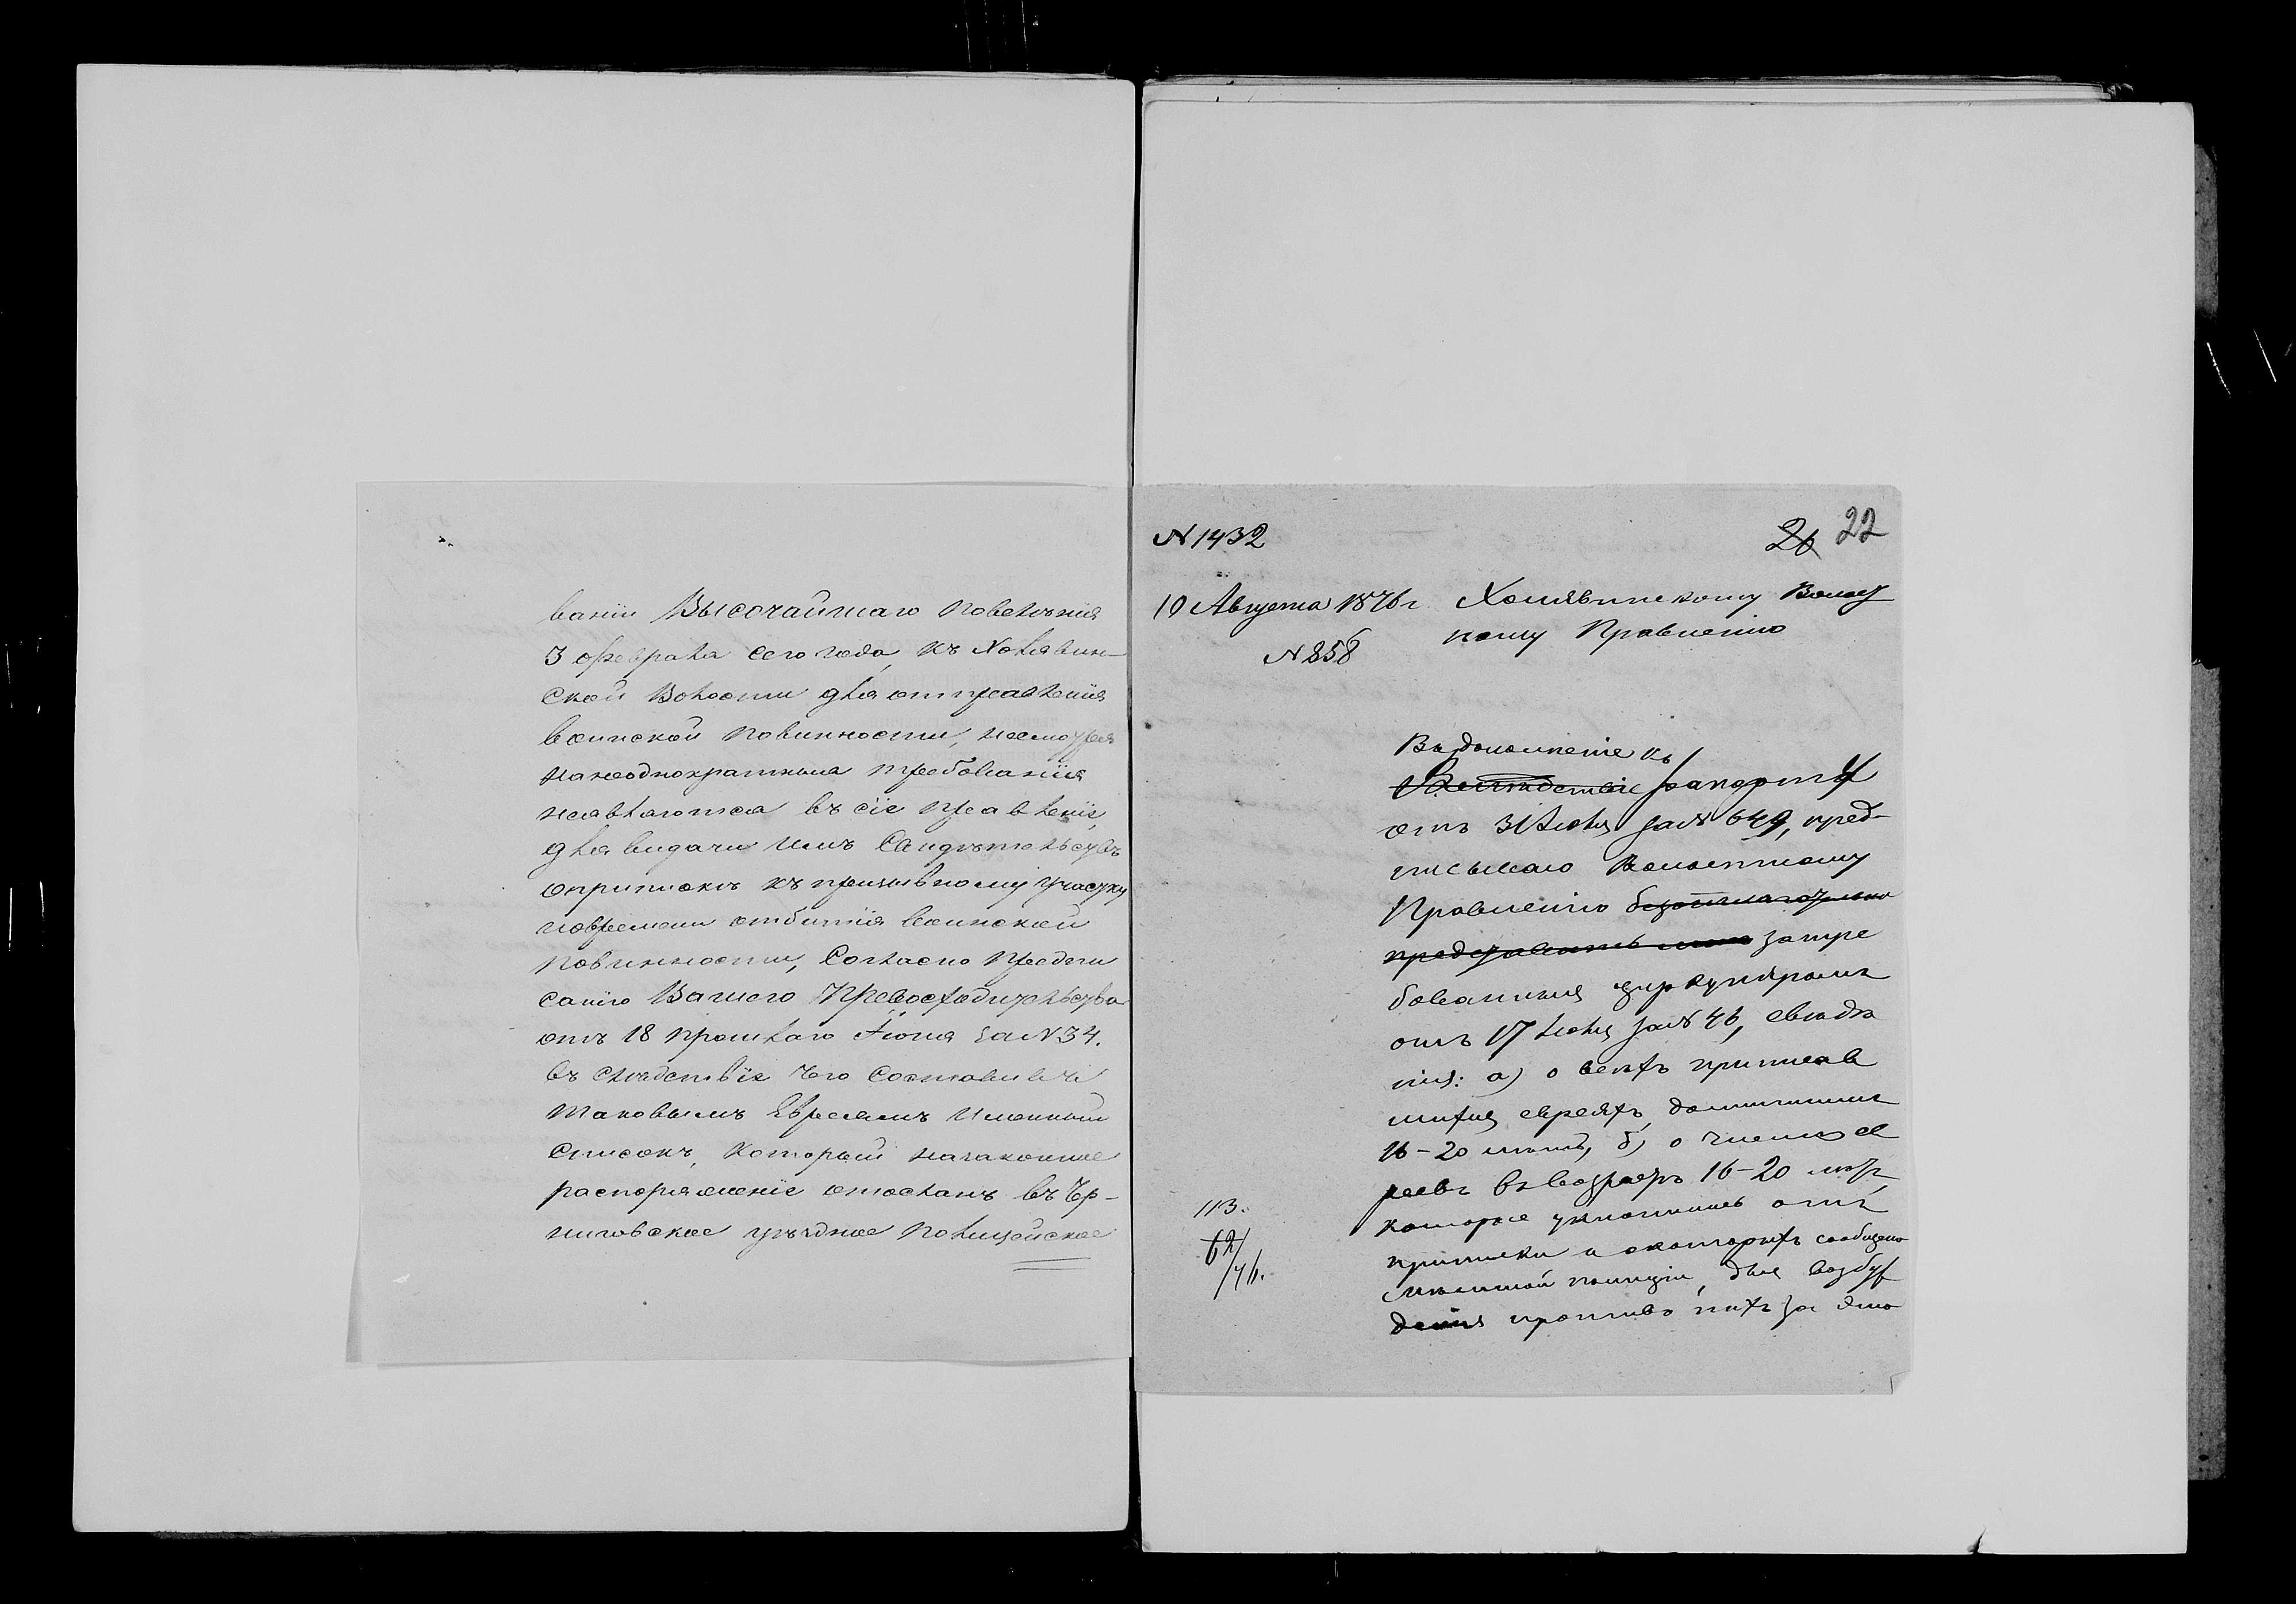 ваніи Высочайшаго повелѣнія
3 февраля сего года, къ Холявин-
ской Волости для отправленія
воинской повинности, несмотря
на неоднократныя требованія
неявляются въ сіе правленіе,
для видачи имъ Свидѣтельствъ
оприпискѣ къ призывному участку
повремени отбытія воинской
повинности, Согласно предпи
санію Вашего Превосходительства
отъ 18 прошлаго Іюня за N 34.
въ слѣдствіе чего Составивъ
таковымъ Евреямъ Именный
Списокъ, который назаконное
распоряженіе отосланъ въ Чер-
ниговское уѣздное полицейское
N 1432
26 22
10 Августа 1876 г. Холявинскому Волост
ному Правленію
N 858
Въ дополненіе къ
Вслѣдствіе рапорту
отъ 31 Іюля за N 649, пред-
писываю Волостному
Правленію безотлагательно
представить мнѣ затре
бованныя циркуляромъ
отъ 17 Іюля за N 46, свѣдѣ
нія: а) о всѣхъ приписав
шихся евреяхъ, достигшихъ
16-20 лѣтъ, б) о числѣ ев
реевъ въ возрастѣ 16-20 лѣтъ,
которые уклонились отъ
приписки и окоторыхъ сообщено
мѣстной полиціи, для возбуж
денія противо нихъ за это
113.
62/46.